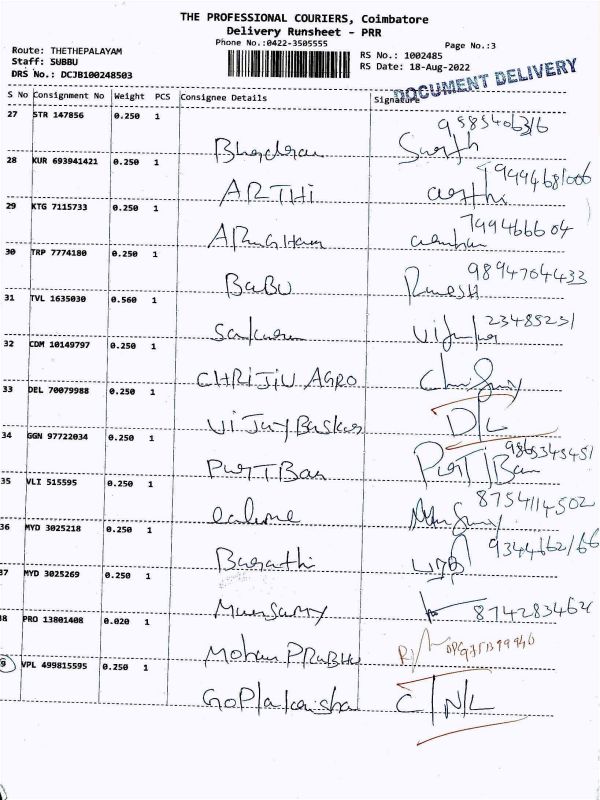 THE PROFESSIONAL COURIERS, Coimbatore
Delivery Runsheet - PRR
Phone No.:0422-3505555
Page No.:3
Route: THETHEPALAYAM
Staff: SUBBU
DRS No.: DCJB100248503
RS No.: 1002485
RS Date: 18-Aug-2022
DOCUMENT DELIVERY
S No Consignment No Weight PCS Consignee Details Signature
27 STR 147856 0.250 1
28 KUR 693941421 0.250 1
ARTHI 9994681006
29 KTG 7115733 0.250 1
7994666604
30 TRP 7774180 0.250 1
BABU Ramesh 9894704433
31 TVL 1635030 0.560 1
23485231
32 CDM 10149797 0.250 1
CHRIJIU AGRO
33 DEL 70079988 0.250 1
Vijay Baskar D/L
34 GGN 97722034 0.250 1
9865345451
35 VLI 515595 0.250 1
8754114502
36 MYD 3025218 0.250 1
Barathi 9344662166
37 MYD 3025269 0.250 1
Munsamy 874283462
38 PRO 13801408 0.020 1
Mohan PRABHU
39 VPL 499815595 0.250 1
C/N/L